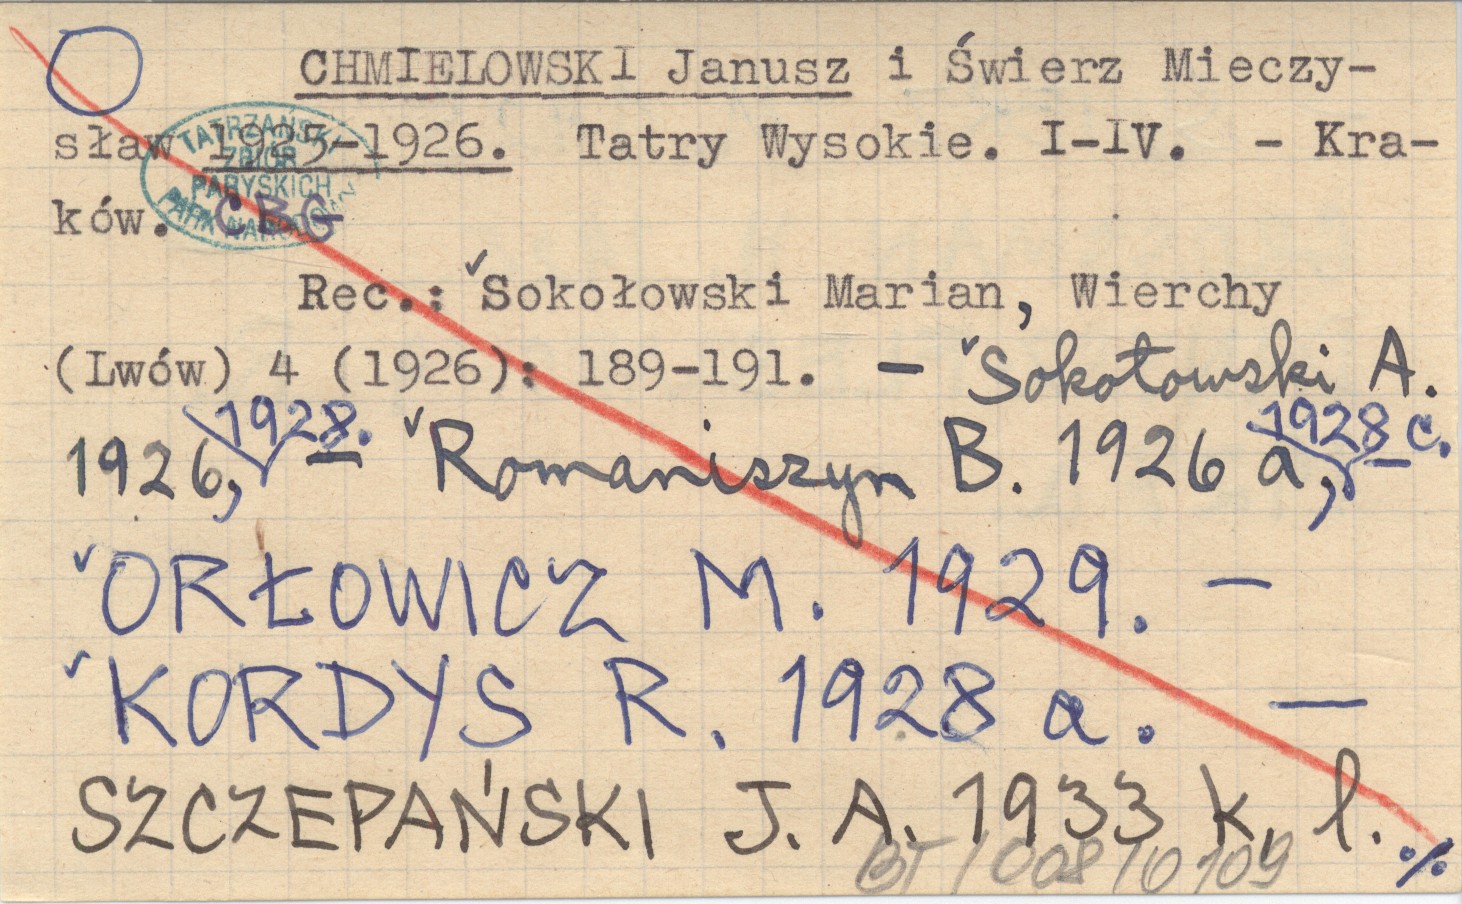 CHMIELOWSKI Janusz i Świerz Mieczy-
sław 1925-1926. Tatry Wysokie. I-IV. - Kra-
ków. CBG
TATRZAŃSKI
ZBIÓR
PARYSKICH
PARK NARODOWY
Rec.: Sokołowski Marian, Wierchy
(Lwów) 4 (1926): 189-191. - Sokołowski A.
1926, 1928. - Romaniszyn B. 1926 a, 1928 c. -
ORŁOWICZ M. 1929. -
KORDYS R. 1928 a. -
SZCZEPAŃSKI J. A. 1933 k, l.
BT/008/0109 %